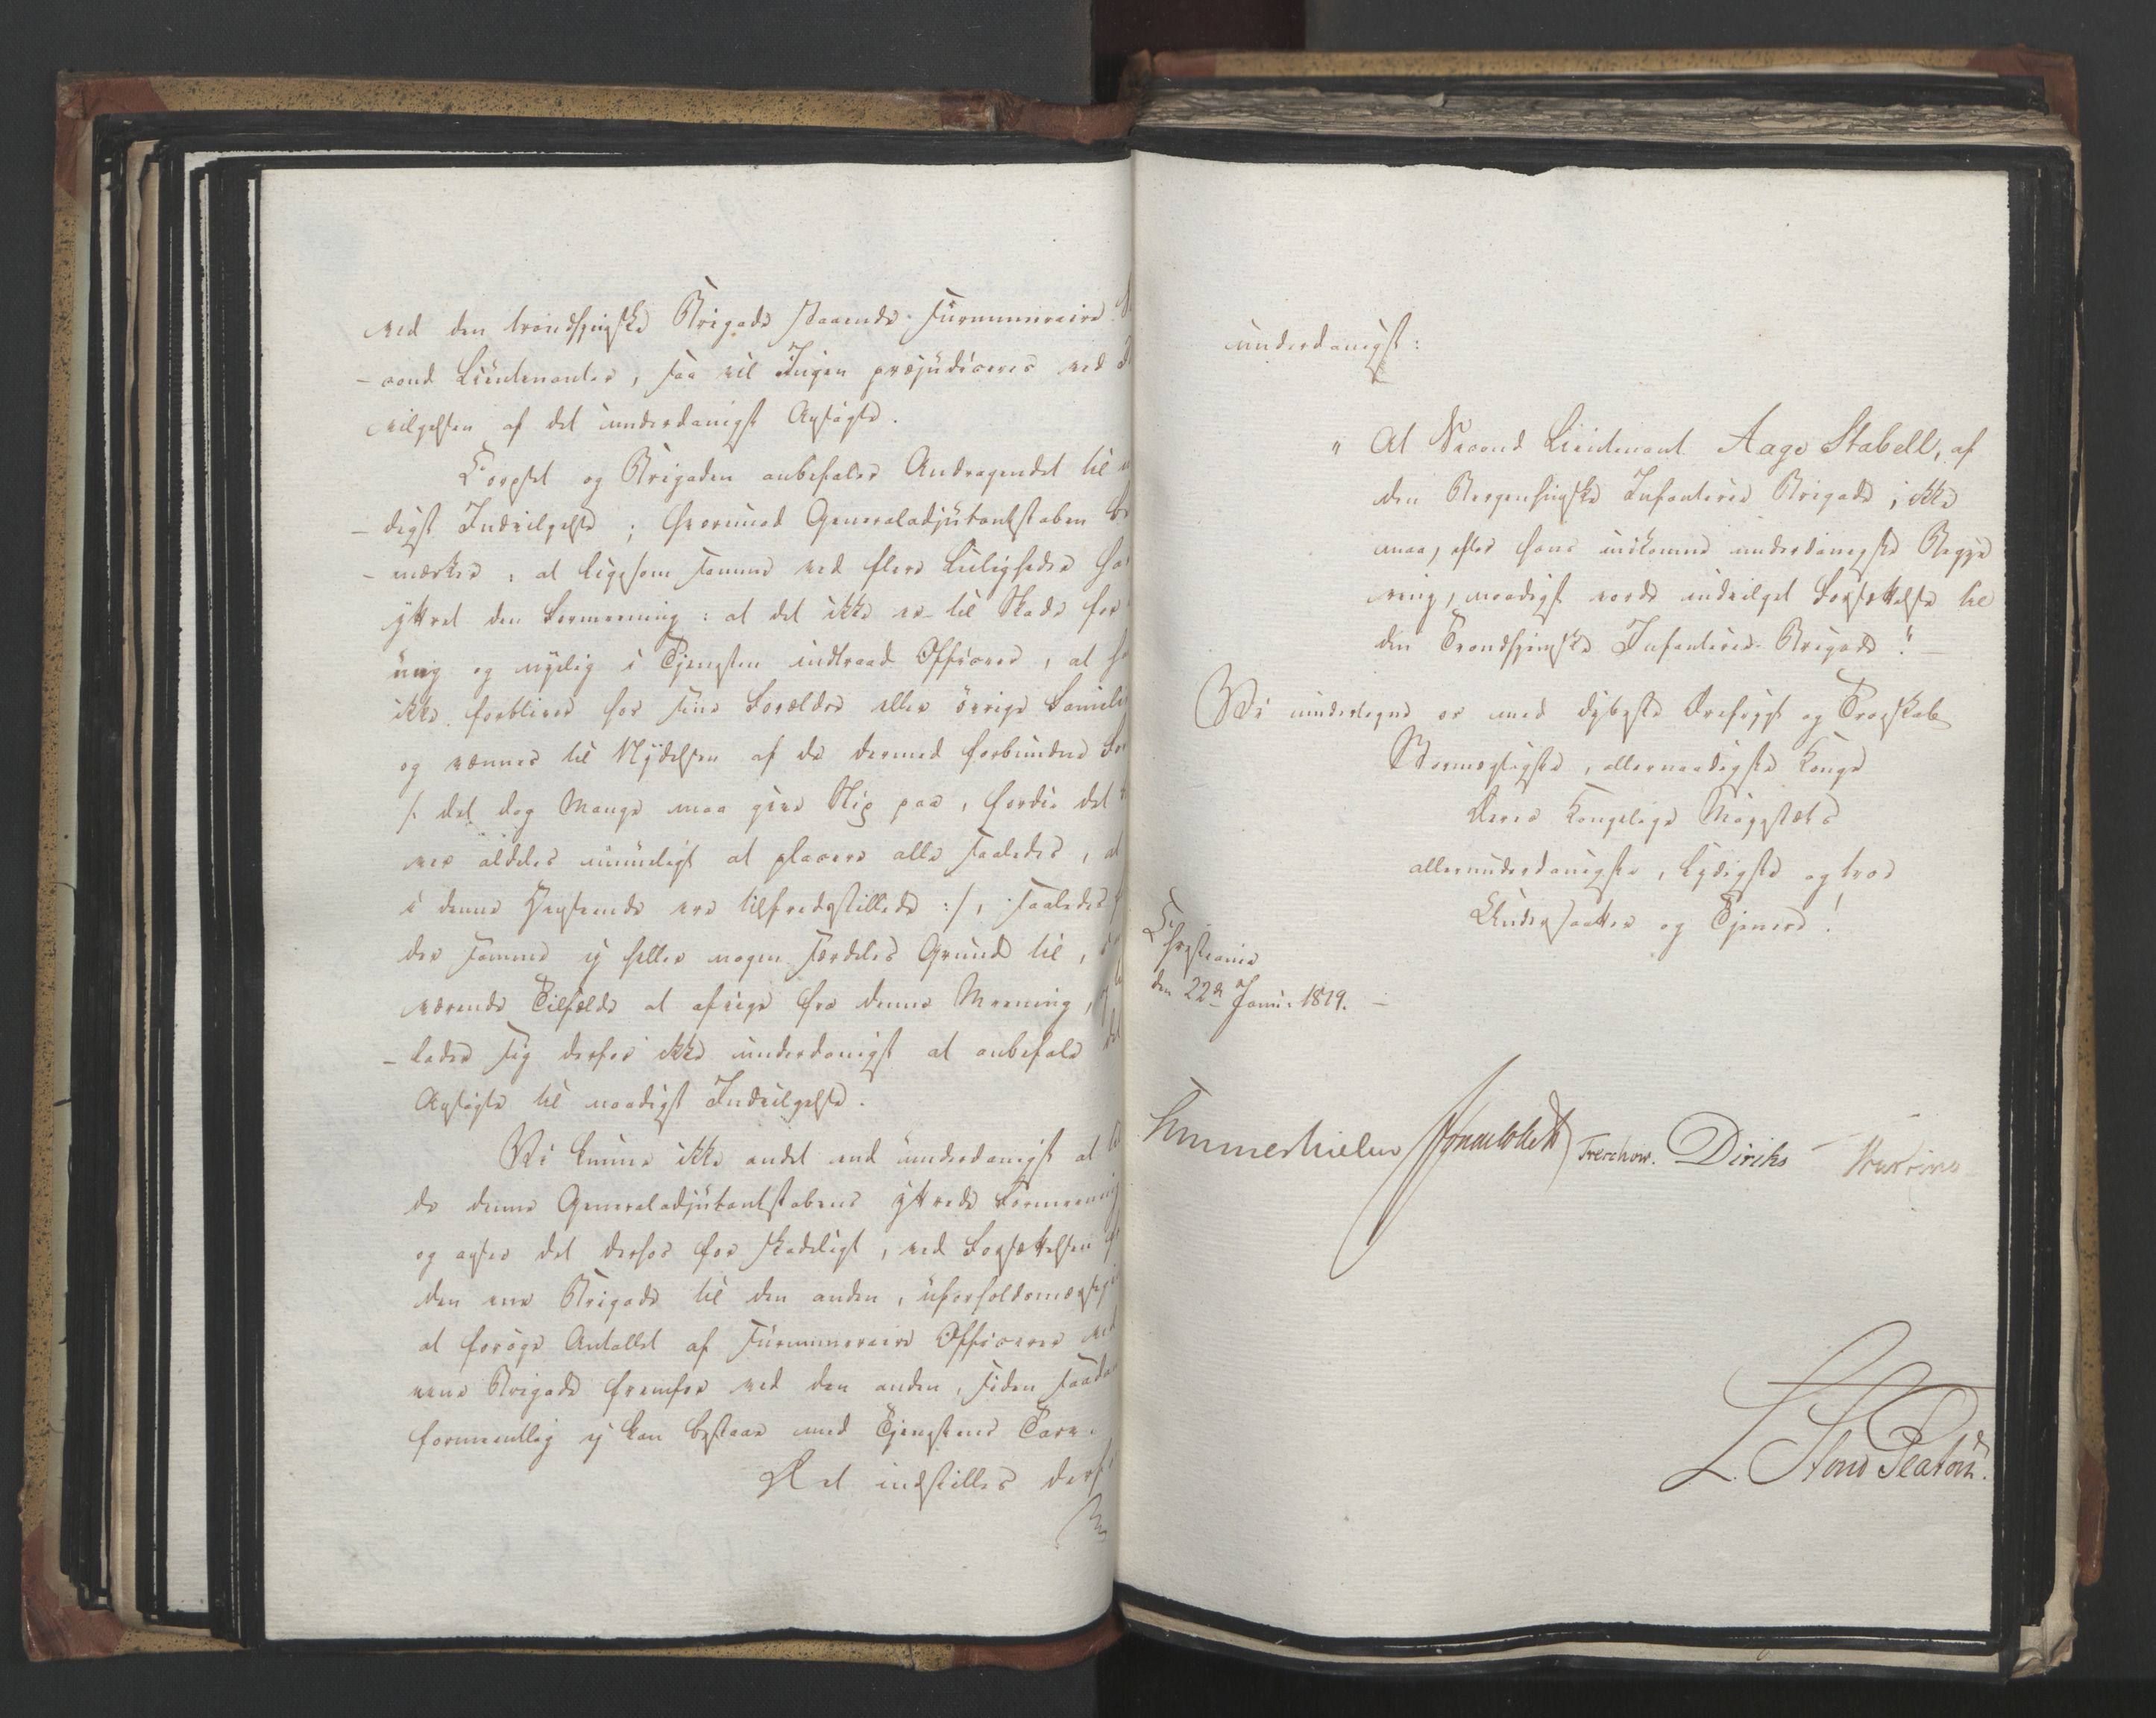 ved den trondhjemske Brigade staaende Surnumeraire
-cond Lieutenanter, saa vil Ingen præjudiceres ved
vilgelsen af det underdanigst Ansøgte.
Corpset og Brigaden anbefaler Andragendet til
-digst Indvilgelse; hvorimod Generaladjutantstaben be
-mærker: at ligesom samme ved flere Leiligheder har
yttret den Formeening: at det ikke er til Skade for
ung og nyelig i Tjenesten indtraad Officeer, at
ikke forbliver hos sine Forældre eller øvrige Famile
og vænnes til Nydelsen af de dermed forbundne
/: det dog Mange maa give Slip paa, fordi det
var aldeles umueligt at placere alle saaledes, at
i denne Henseende ere tilfredsstillede :/, saaledes
der samme ej heller nogen særdeles Grund til, i
værende Tilfælde at afvige fra denne Meening, og
-lader sig derfor ikke underdanigst at anbefale det
Ansøgte til naadigst Indvilgelse.
Vi kunne ikke andet end underdanigst at
de denne Generaladjutantstabens yttrede Formeening
og anser det derfor for skadeligt, ved Forsættelsen
den ene Brigade til den anden, uforholdsmæssig
at forøge Antallet af Surnumeraire Officerer ved
eene Brigade fremfor ved den anden, siden saadan
formeentlig ej kan bestaae med Tjenestens Tarv.
Det indstilles derf
underdanigst:
" At Second Lieutenant Aage Stabell, af
den Bergenhuusske Infanterie Brigade, ikke
maa, efter hans indkomne underdanigste Begjæ
ring, naadigst vorde indvilget Forsættelse til
den Trondhjemske Infanterie-Brigade." —
Vi undertegne os med dybeste Ærefrygt og Troskab
Stormægtigste, allernaadigste Konge
Deres Kongelige Majestæts
allerunderdanigste, lydigste og troe
Undersaatter og Tjenere!
Christiania
den 22de Janu: 1819. —
Sommerhielm Treschow. Diriks
L. Stoud Platou.